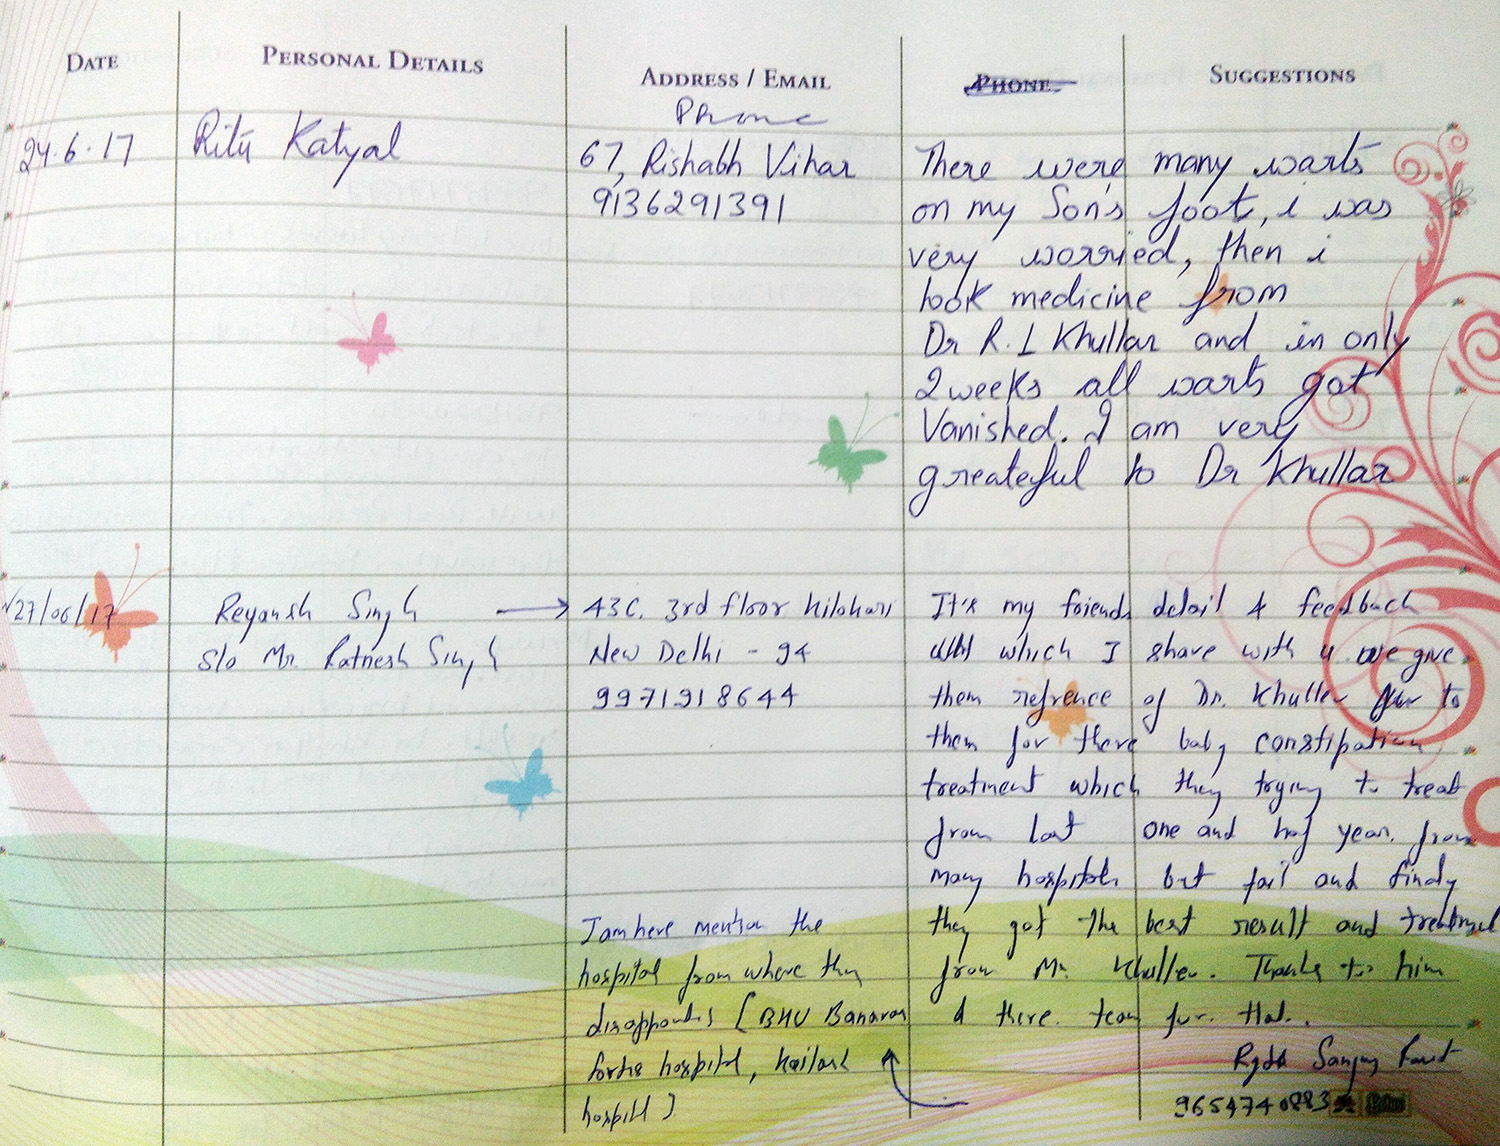 DATE PERSONAL DETAILS ADDRESS / EMAIL PHONE SUGGESTIONS
Phone
24.6.17 Ritu Katyal 67, Rishabh Vihar
9136291391
There were many warts
on my Son's foot, i was
very worried, then i
took medicine from
Dr R. L Khullar and in only
2 weeks all warts got
Vanished. I am very
greateful to Dr Khullar
27/06/17 Reyansh Singh → 43C. 3rd floor kilokari
S/o Mr. Ratnesh Singh New Delhi - 94
9971918644
It's my friends detail & feedback
which I share with u we give
them refrence of Dr. Khuller to
them for there baby constipation
treatment which they trying to treat
from last one and haf year. from
many hospitals but fail and finaly
they got the best result and treatment
from Mr. Khuller. Thanks to him
& there. team for. that..
I am here mention the
hospital from where they
disappointed [BHU Banaras
fortis hospital, kailash
hospitl]
Sanjay
9654740883